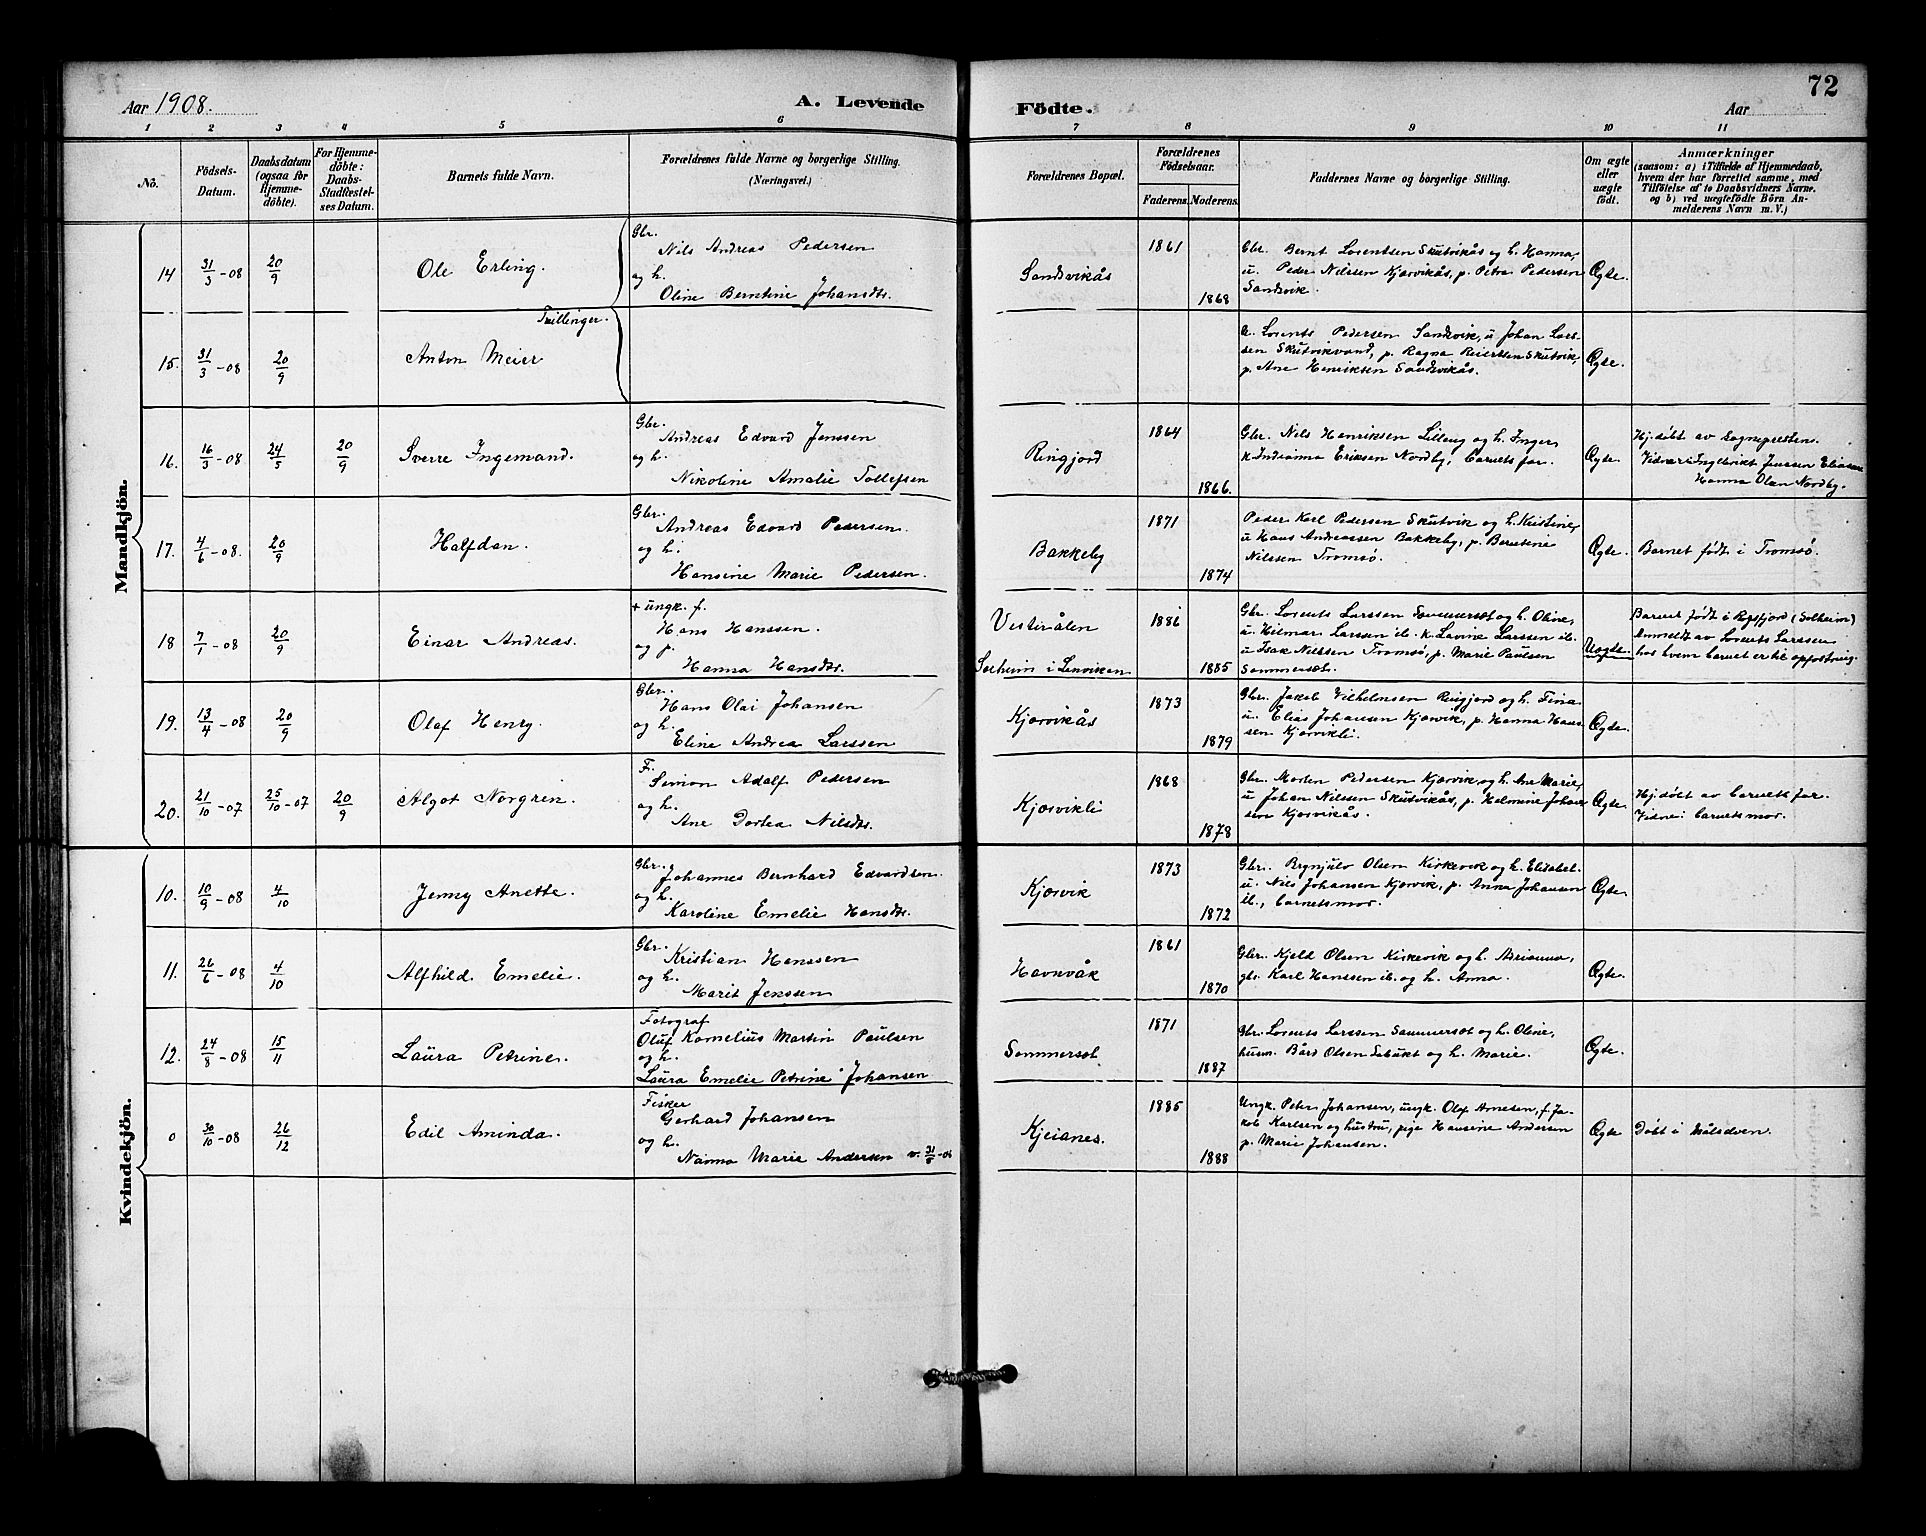 72
Aar 1908.
A. Levende Födte.
Aar
1 2 3 4 5 6 7 8 9 10 11
No.
Födsels-
Datum.
Daabsdatum
(ogsaa for
Hjemme-
döbte).
For Hjemme-
döbte:
Daabs-
Stadfæstel-
ses Datum.
Barnets fulde Navn.
Forældrenes fulde Navne og borgerlige Stilling.
(Næringsvei.)
Forældrenes Bopæl.
Forældrenes
Födselsaar.
Faderens.
Moderens.
Faddernes Navne og borgerlige Stilling.
Om ægte
eller
uægte
födt.
Anmærkninger
(saasom: a) i Tilfælde af Hjemmedaab,
hvem der har forrettet samme, med
Tilföielse af to Daabsvidners Navne,
og b) ved uægtefödte Börn An-
melderens Navn m. V.)
Mandkjön.
14 31/3 -08 20/9
Ole Erling.
Gbr.
Nils Andreas Pedersen
og h.
Oline Berntine Johansdtr.
Sandsvikås
1861
1868
Gbr. Bernt Lorentsen Skutvikås og h. Hanna,
u. Peder Nilsen Kjørvikås, p. Petra Pedersen
Sandsvik.
Ægte.
Tvillinger.
15. 31/3 -08 20/9
Anton Meier
u. Lorents Pedersen Sandsvik, u Johan Lars-
sen Skutvikvand, p. Ragna Reiertsen Skutvik,
p. Ane Henriksen Sandsvikås.
Ægte.
16. 16/3 -08 24/5 20/9
Sverre Ingemand.
Gbr.
Andreas Edvard Jenssen
og h.
Nikoline Amalie Tollefsen
Ringjord
1864
1866.
Gbr. Nils Henriksen Lilleng og h. Inger,
k. Indianna Eriksen Nordby, barnets far.
Ægte.
Hj.døbt av Sognepresten.
Vidner: Ingebrikt Jenssen Eliassen
Hanna Olsen Nordby.
17. 4/6 -08. 20/9
Halfdan.
Gbr.
Andreas Edvard Pedersen.
og h.
Hansine Marie Pedersen.
Bakkeby
1871
1874
Peder Karl Pedersen Skutvik og h. Kristine,
u Hans Andreassen Bakkeby, p. Berntine
Nilssen Tromsø.
Ægte.
Barnet født i Tromsø.
18 7/1 -08 20/9
Einar Andreas.
+ ungk. f.
Hans Hanssen.
og p.
Hanna Hansdtr.
Vesterålen
Solheim i Lenviken
1886
1885
Gbr. Lorents Larssen Sommerset og h. Oline,
u. Hilmar Larssen ib. k. Lavine Larssen ib.
u Isak Nilssen Tromsø, p. Marie Paulsen
Sommerset.
Uægte.
Barnet født i Rossfjord (Solheim)
Anmeldt av Lorents Larssen
hos hvem barnet er til opfostring.
19. 13/4 -08 20/9
Olaf Henry.
Gbr.
Hans Olai Johansen
og h.
Eline Andrea Larssen
Kjørvikås
1873
1879
Gbr. Jakob Vilhelmsen Ringjord og h. Tina
u. Elias Johansen Kjørvik, p. Hanna Hans-
sen Kjørvikli.
Ægte.
20. 21/10 -07 25/10 -07 20/9
Algot Norgren.
F.
Simon Adolf Pedersen
og h.
Ane Dortea Nilsdtr.
Kjørvikli
1868
1878
Gbr. Morten Pedersen Kjørvik og h. Ane Marie,
u. Johan Nilssen Skutvikås, p. Helmine Johan-
sen Kjørvikås.
Ægte.
Hj.døbt av barnets far.
Vidne: barnets mor.
Kvindekjön.
10. 10/9 -08 4/10
Jenny Anette.
Gbr.
Johannes Bernhard Edvardsen.
og h.
Karoline Emelie Hansdtr.
Kjørvik
1873
1872
Gbr. Brynjulv Olsen Kirkevik og h. Elisabet.
u. Nils Johansen Kjørvik, p. Anna Johansen
ib., barnets mor.
Ægte.
11. 26/6 -08 4/10
Alfhild Emelie.
Gbr.
Kristian Hanssen
og h.
Marit Jenssen
Havnvåk
1861
1870
Gbr. Kjeld Olsen Kirkevik og h. Arianna,
gbr. Karl Hanssen ib. og h. Anna.
Ægte.
12. 24/8 -08 15/11
Laura Petrine.
Fotograf
Oluf Kornelius Martin Paulsen
og h.
Laura Emelie Petrine Johansen
Sommerset
1871
1887
Gbr. Lorents Larssen Sommerset og h. Oline,
husm. Bård Olsen Solbukt og h. Marie.
Ægte.
0 30/10 -08 26/12
Edil Aminda.
Fisker
Gerhard Johansen
og h.
Nanna Marie Andersen v. 31/5 -06
Kjeianes.
1885
1888
Ungk. Peter Johansen, ungk. Olaf Arnesen, f. Ja-
kob Karlsen og hustru, pige Hansine Andersen
p. Marie Johansen.
Ægte
Døbt i Målselven.